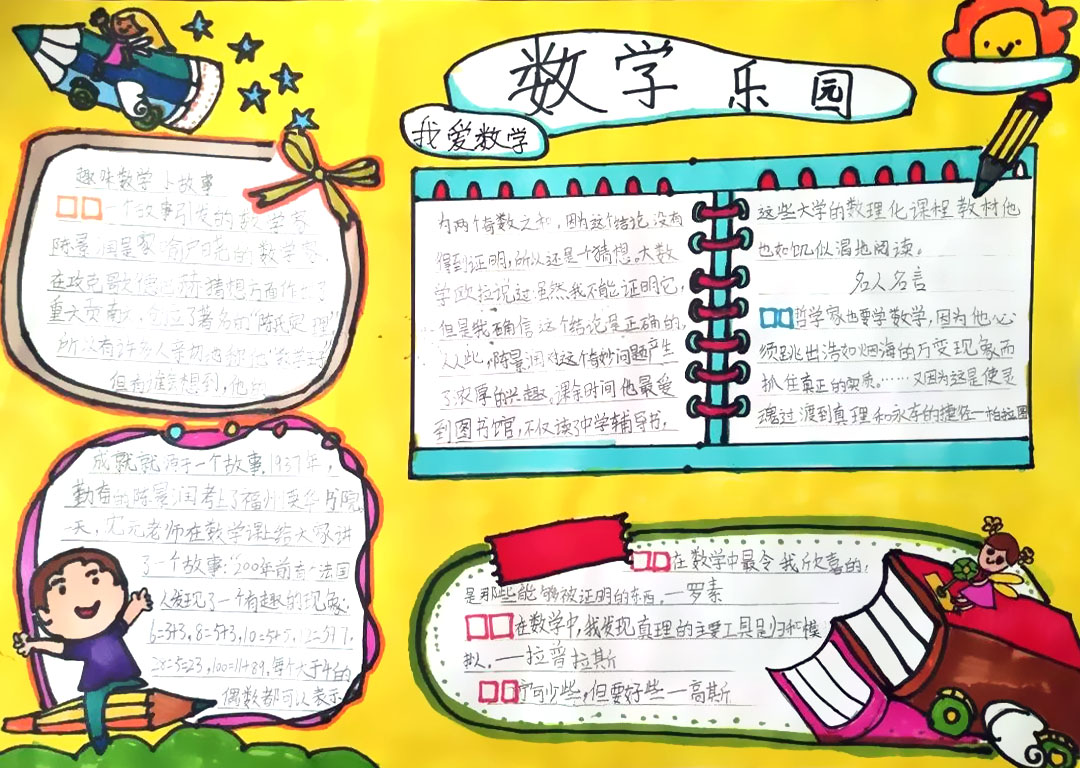 数学乐园
我爱数学
趣味数学小故事
一个故事引发的数学家
陈景润是家喻户晓的数学家,
在攻克哥德巴赫猜想方面作出了
重大贡献,创立了著名的“陈氏定理”
所以有许多人亲切地称他“数学王子”
但有谁会想到,他的
成就就源于一个故事.1937年,
勤奋的陈景润考上了福州英华书院,
一天,沈元老师在数学课上给大家讲
了一个故事:“200年前有一法国
人发现了一个有趣的现象:
6=3+3,8=5+3,10=5+5,12=5+7,
28=5=23,100=11+89,每个大于4的
偶数都可以表示
为两个奇数之和,因为这个结论没有
得到证明,所以还是一个猜想。大数
学欧拉说过虽然我不能证明它,
但是我确信这个结论是正确的,
从此,陈景润对这个奇妙问题产生
了浓厚的兴趣。课余时间他最爱
到图书馆,不仅读了中学辅导书,
这些大学的数理化课程教材他
也如饥似渴地阅读。
名人名言
哲学家也要学数学,因为他必
须跳出浩如烟海的万变现象而
抓住真正的实质。……又因为这是使灵
魂过渡到真理和永存的捷径—柏拉图
在数学中最令我欣喜的:
是那些能够被证明的东西.—罗素
在数学中,我发现真理的主要工具是归和模
拟.——拉普拉斯
宁可少些,但要好些—高斯